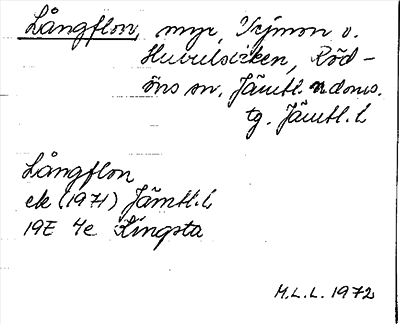 Långflon, myr, Trjmon v.
Huvulsviken, Röd-
öns sn, Jämtl. n. doms.
tg. Jämtl. l
Långflon
ek (1971) Jämtl. l
19E 4e Kingsta
M.L.L. 1972